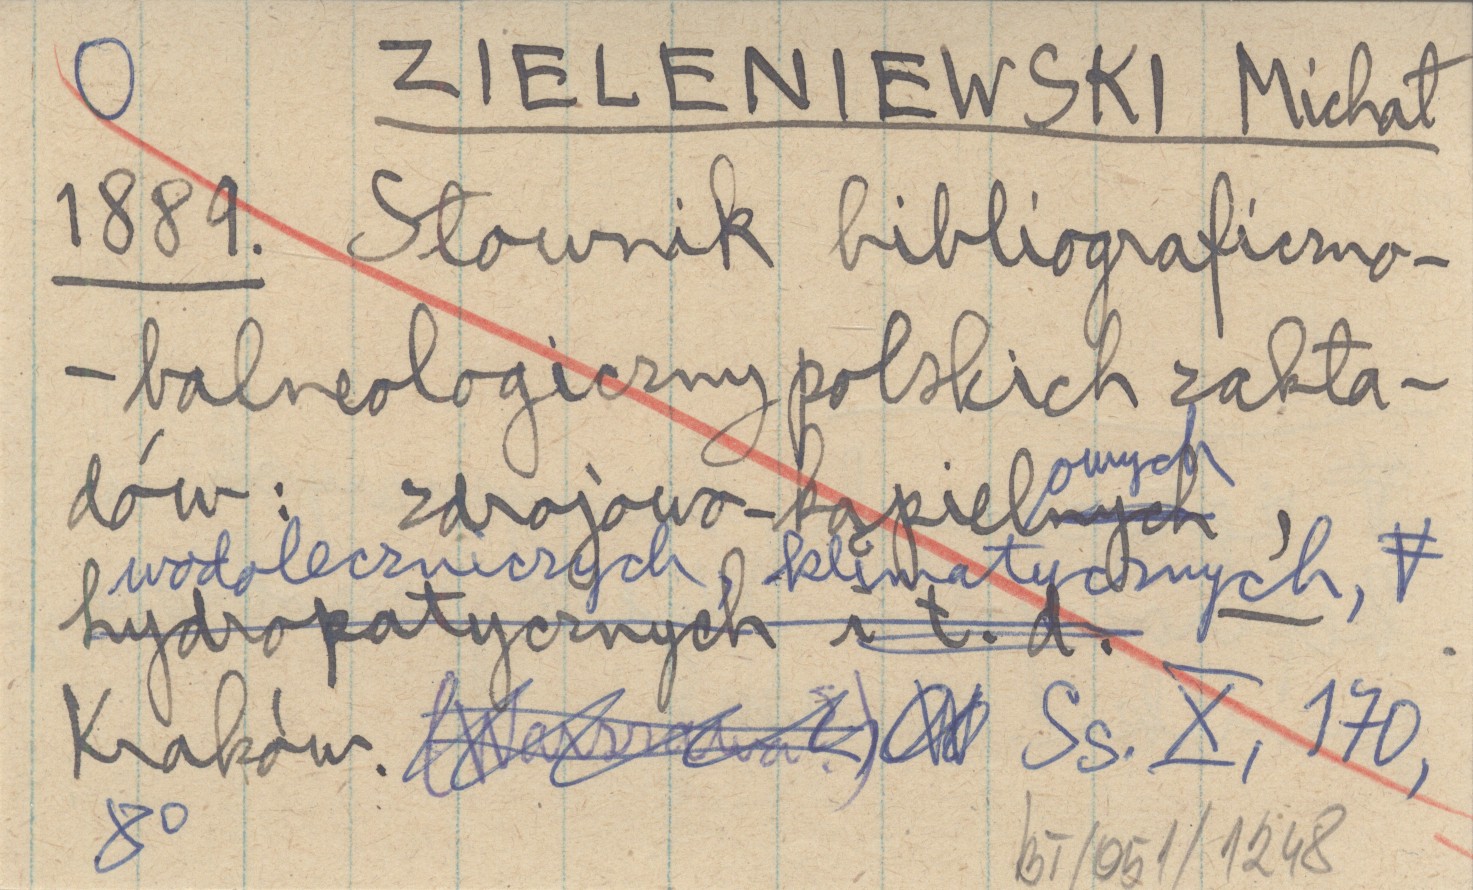 O ZIELENIEWSKI Michał
1889. Słownik bibliograficzno-
-balneologiczny polskich zakła-
owych
dów: zdrojowo-kąpielnych,
wodoleczniczych, klimatycznych, #
hydropatycznych i t. d.
Kraków. Ss. X, 170,
8°
bI/051/1248